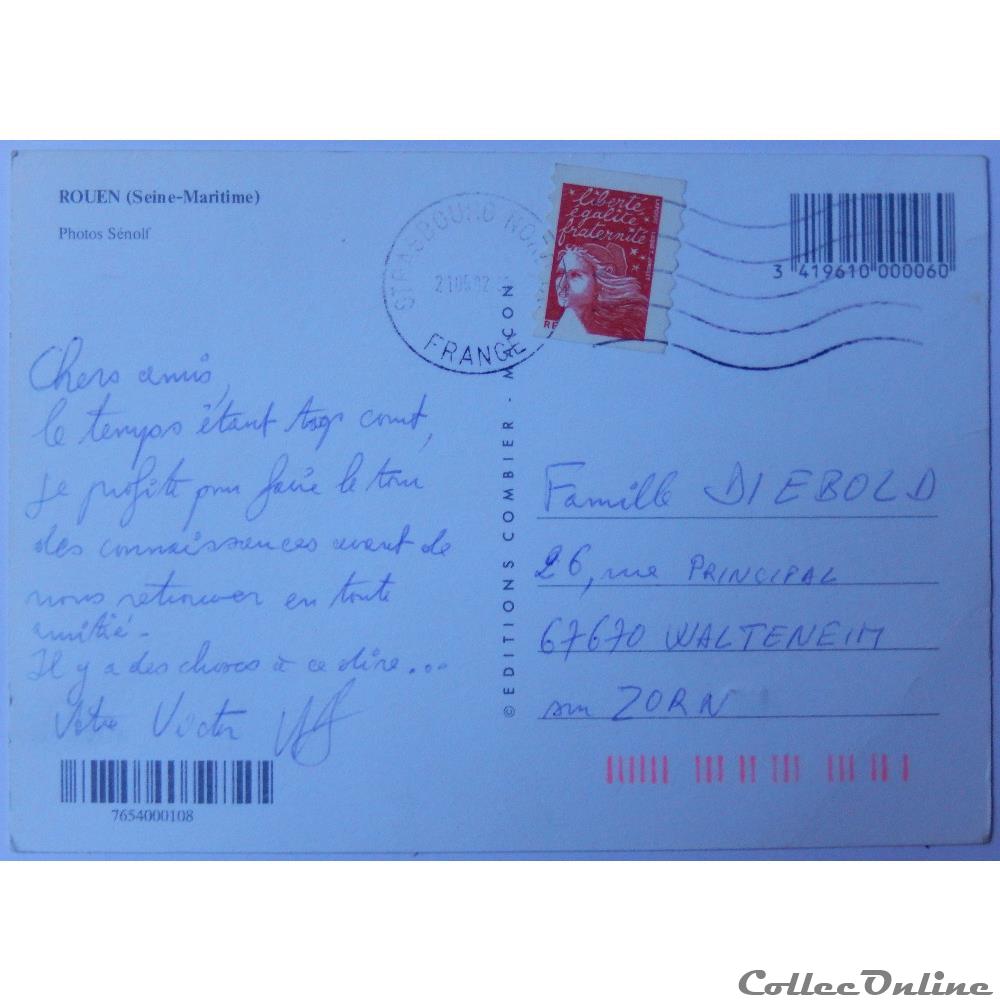 ROUEN (Seine-Maritime)
Photos Sénolf
STRASBOURG NORD
FRANCE
liberté
égalité
fraternité
RF
3 419610 000060
Chers amis,
le temps étant trop court,
je profite pour faire le tour
des connaissances avant de
nous retrouver en toute
amitié.
Il y a des choses à ce dire...
Votre Victor
7654000108
© EDITIONS COMBIER - MACON
Famille DIEBOLD
26, rue PRINCIPAL
67670 WALTENEIM
sur ZORN
CollecOnline